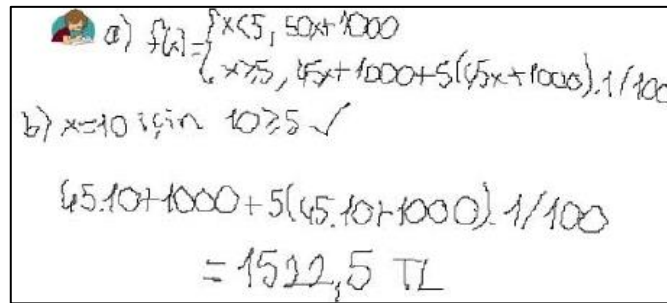 a) f(x)={x<5, 50x+1000
{x≥5, 45x+1000+5(45x+1000).1/100
b) x=10 için 10≥5 ✓
45.10+1000+5(45.10+1000).1/100
=1522,5 TL